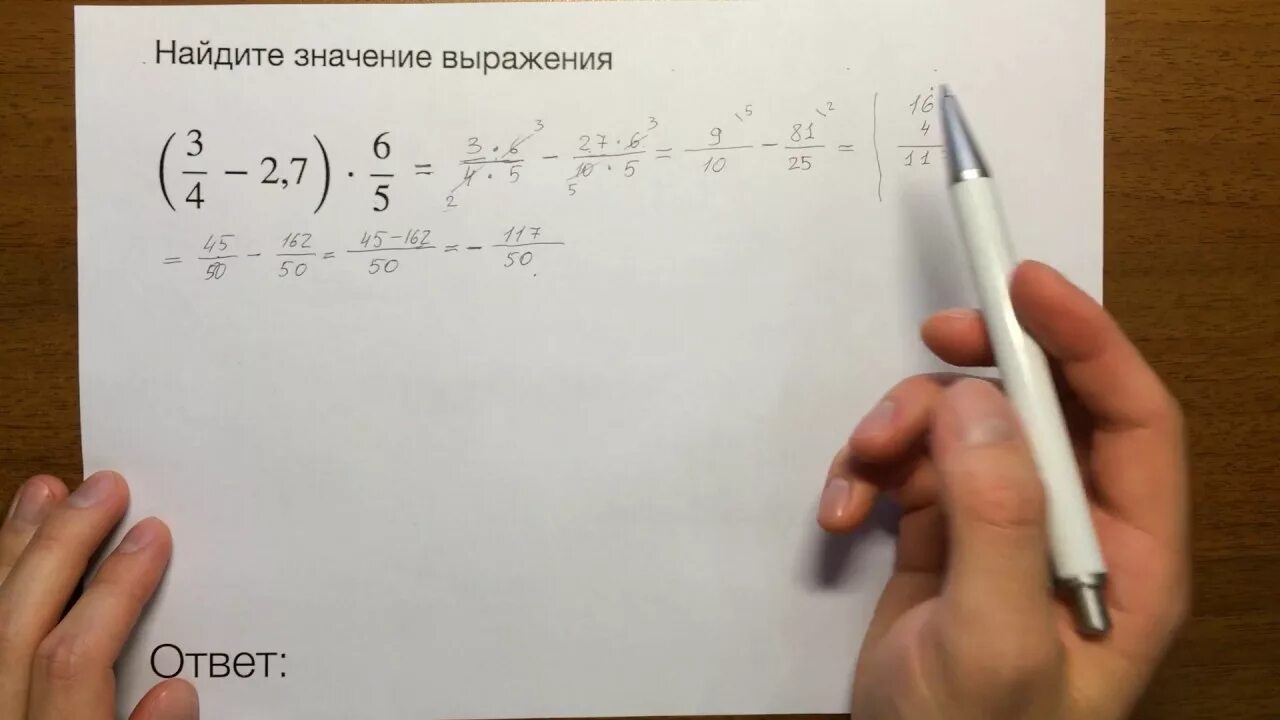 Найдите значение выражения
(3/4 − 2,7) · 6/5 = 3·6/4·5 − 27·6/10·5 = 9/10 − 81/25 =
3 3 \5 \2
2 5
= 45/50 − 162/50 = 45−162/50 = − 117/50
16
4
11
Ответ: